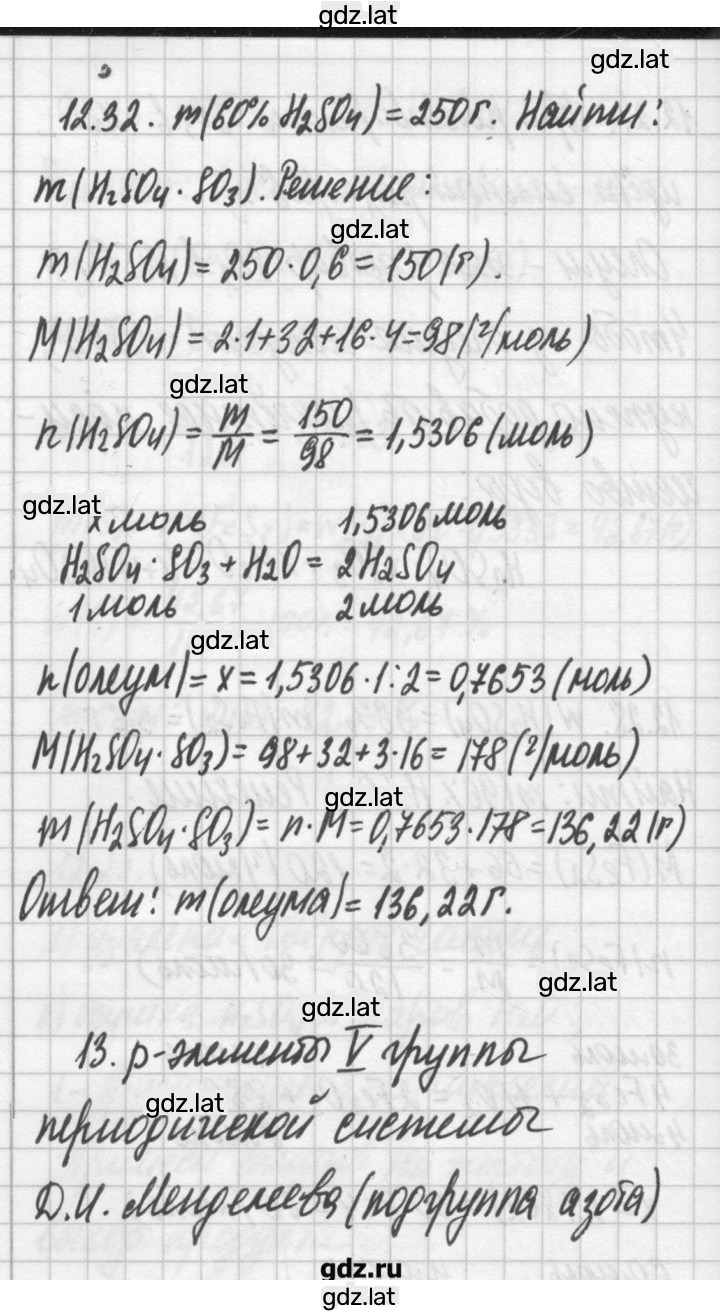 gdz.lat
gdz.lat
12.32. m(60% H₂SO₄) = 250г. Найти:
m(H₂SO₄·SO₃). Решение:
gdz.lat
m(H₂SO₄) = 250·0,6 = 150(г).
M(H₂SO₄) = 2·1+32+16·4=98(г/моль)
gdz.lat
n(H₂SO₄) = m/M = 150/98 = 1,5306 (моль)
gdz.lat
x моль 1,5306 моль
H₂SO₄·SO₃ + H₂O = 2H₂SO₄
1 моль 2 моль
gdz.lat
n(олеум) = x = 1,5306·1:2 = 0,7653 (моль)
M(H₂SO₄·SO₃) = 98+32+3·16 = 178 (г/моль)
gdz.lat
m(H₂SO₄·SO₃) = n·M = 0,7653·178 = 136,22 (г)
Ответ: m(олеума) = 136,22 г.
gdz.lat
gdz.lat
13. p-элементы V группы
gdz.lat
периодической системы
Д.И. Менделеева (подгруппа азота)
gdz.ru
gdz.lat